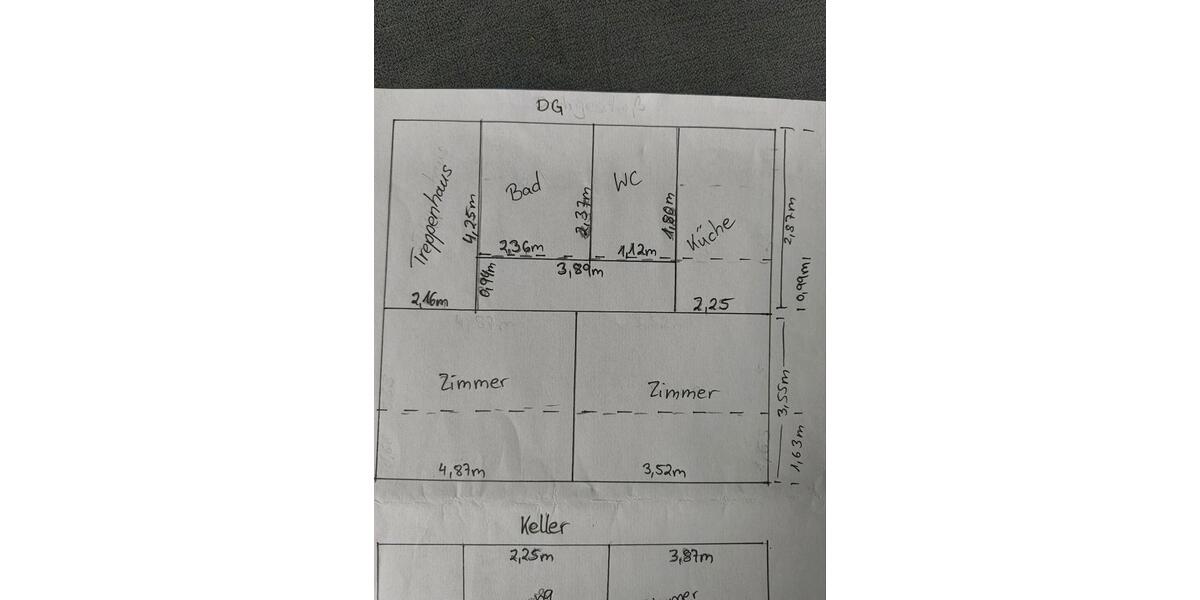 DG
Treppenhaus
4,25m
Bad
2,37m
WC
Küche
2,87m
2,36m
1,12m
3,89m
0,94m
0,99m
2,16m
2,25
Zimmer
Zimmer
3,55m
1,63m
4,87m
3,52m
Keller
2,25m
3,87m